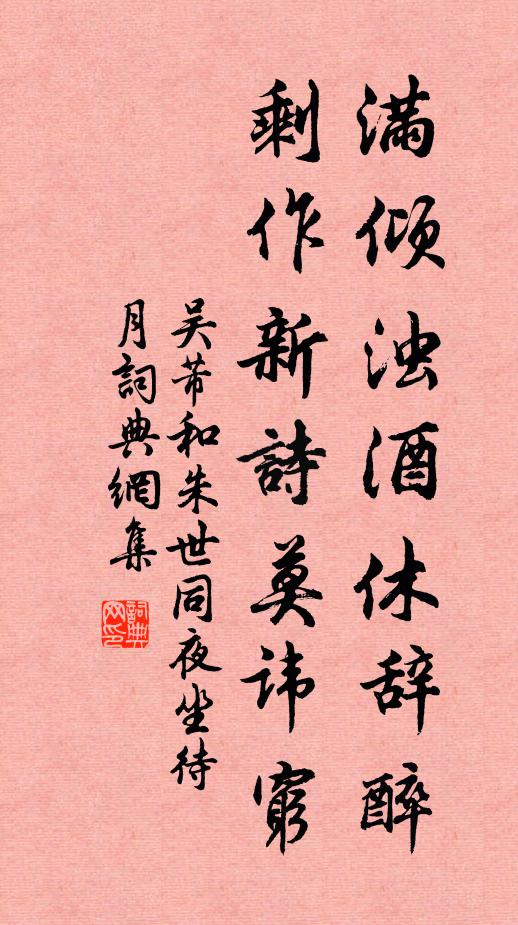 满倾浊酒休辞醉
剩作新詩莫讳窮
吴芾和朱世同夜坐待
月詞典網集
詞典网印